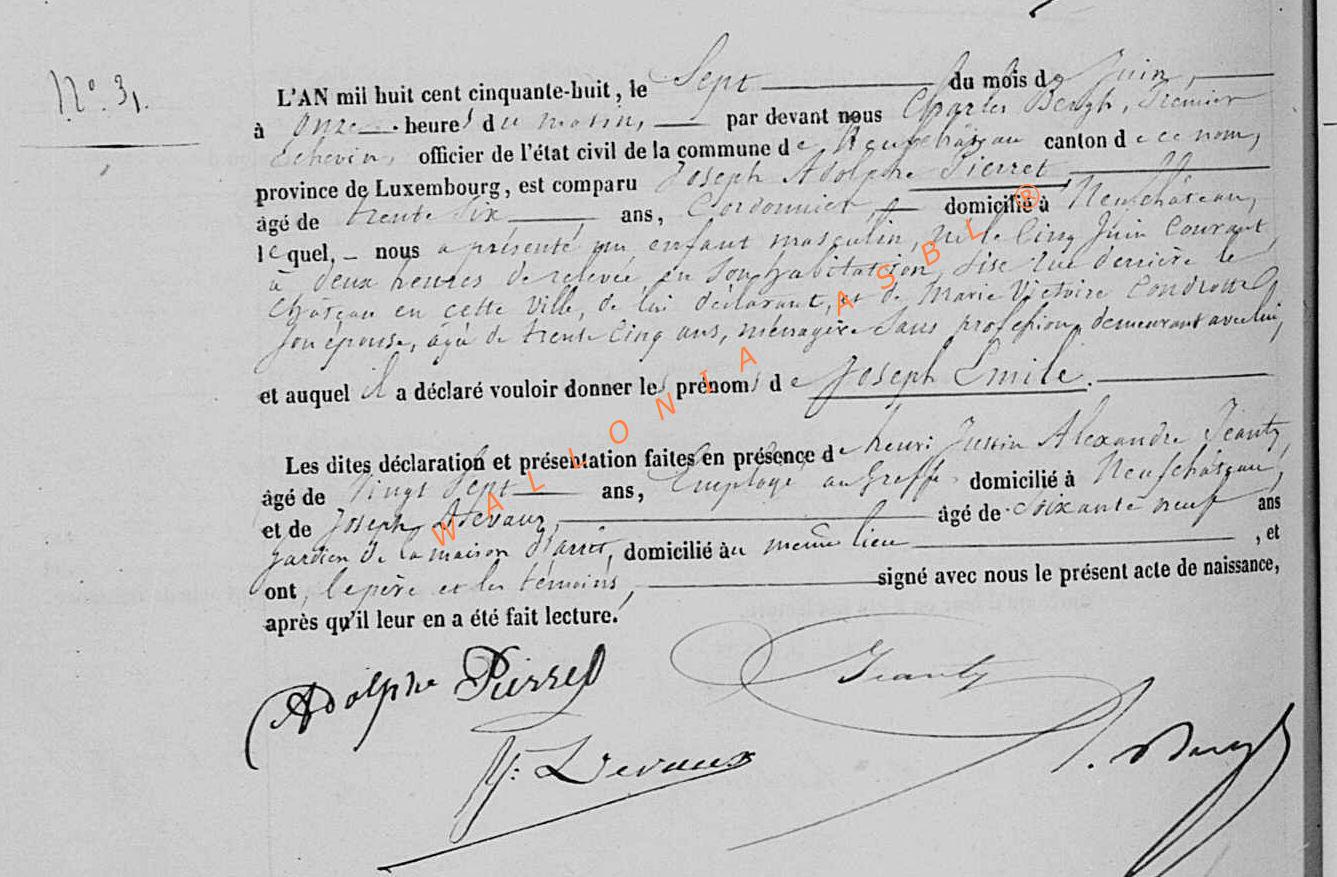 N°. 31.
L'AN mil huit cent cinquante-huit, le Sept du mois de Juin,
à Onze heures du matin, par devant nous Charles Bergh, Premier
Echevin, officier de l'état civil de la commune de Neufchâteau canton de ce nom,
province de Luxembourg, est comparu Joseph Adolphe Pierret
âgé de trente six ans, Cordonnier, domicilié à Neufchâteau,
lequel, nous a présenté un enfant masculin, né le Cinq Juin Courant,
à deux heures de relevée en son habitation, sise rue derrière le
Château en cette ville, de lui déclarant, et de Marie Victoire
son épouse, âgée de trente Cinq ans, ménagère sans profession, demeurant avec lui,
et auquel il a déclaré vouloir donner les prénoms de Joseph Emile.
Les dites déclaration et présentation faites en présence de henri Alexandre Jeanty,
âgé de Vingt Sept ans, Employé au Greffe domicilié à Neufchâteau,
et de Joseph Devaux, âgé de soixante neuf ans
gardien de la maison d'arrêt, domicilié au même lieu , et
ont, le père et les témoins, signé avec nous le présent acte de naissance,
après qu'il leur en a été fait lecture.
Adolphe Pierret
Jeanty
J. Devaux
Bergh
WALLONIA ASBL ®